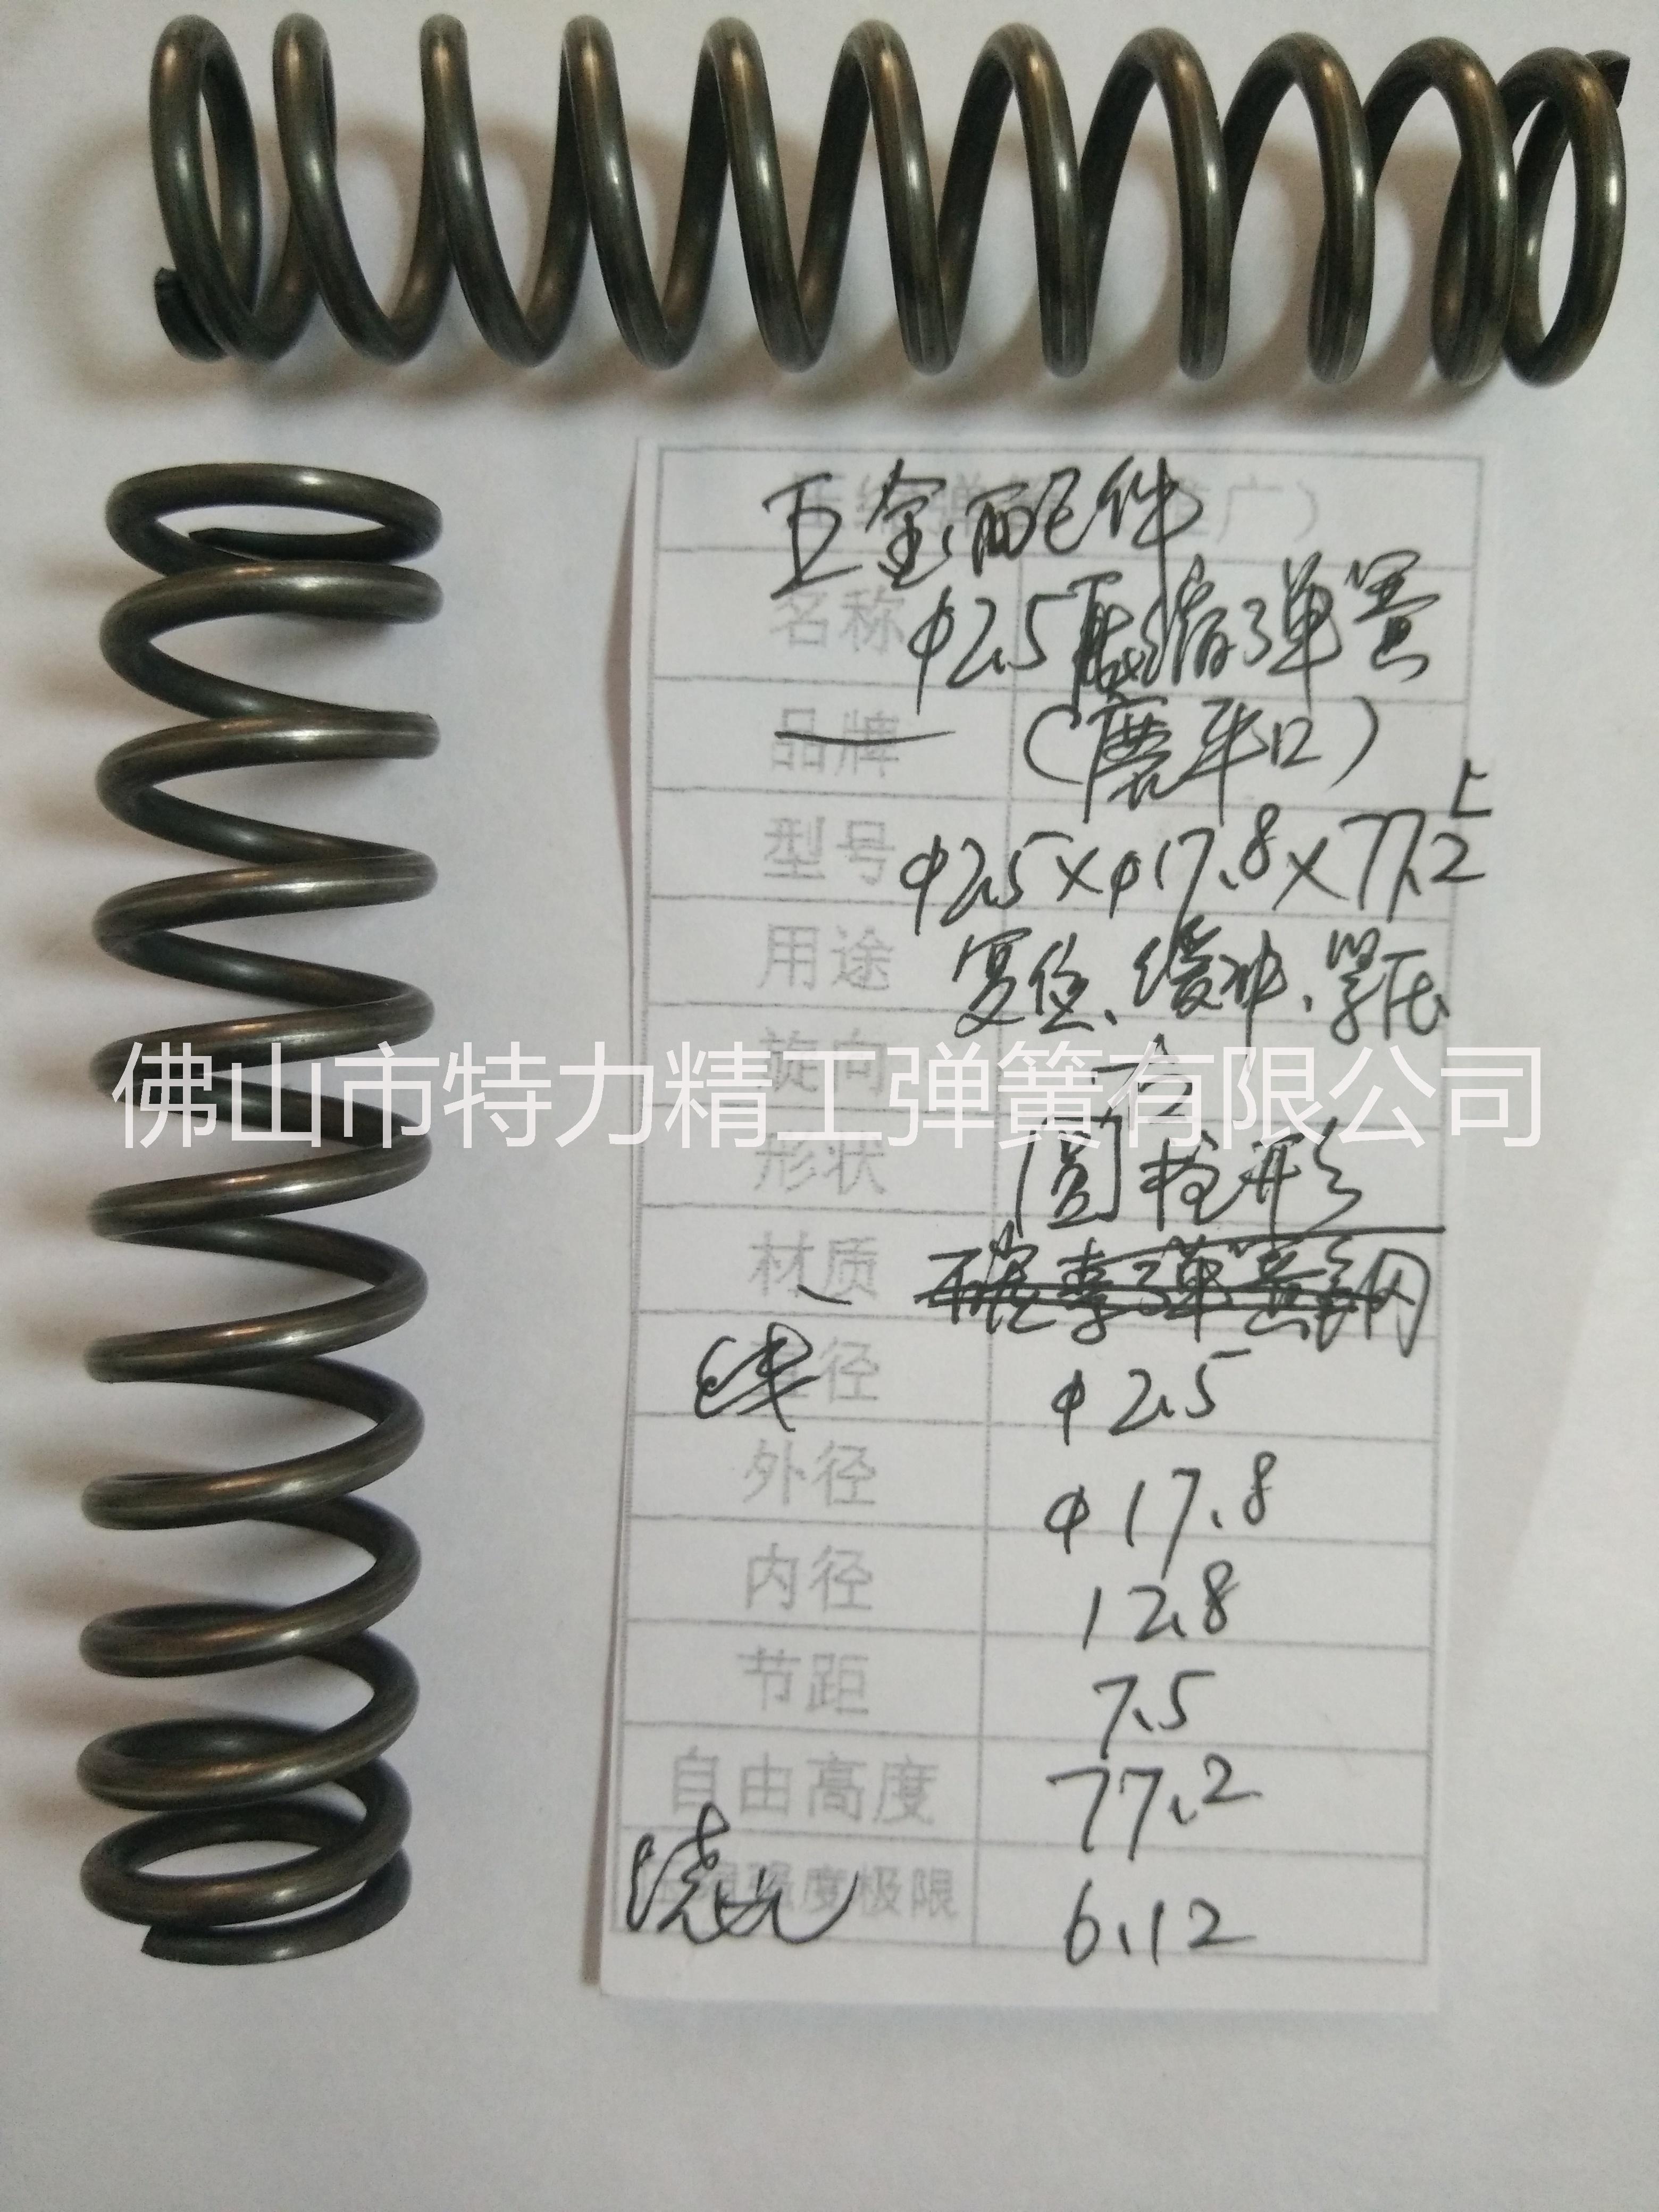 五金配件
名称 φ2.5压缩弹簧
品牌 (磨平口)
型号 φ2.5×φ17.8×77.2
用途 复位、缓冲、紧压
旋向 右
佛山市特力精工弹簧有限公司
形状 圆柱形
材质 碳素弹簧钢
线径 φ2.5
外径 φ17.8
内径 12.8
节距 7.5
自由高度 77.2
强度极限 6.12